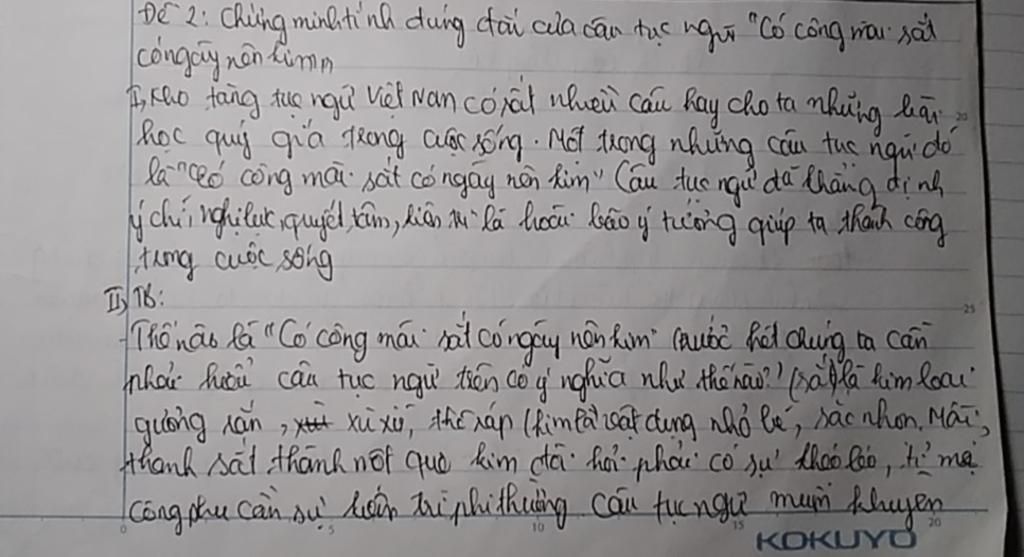 Đề 2: Chứng minh tính đúng đắn của câu tục ngữ "Có công mài sắt
có ngày nên kim
I, Kho tàng tục ngữ Việt Nam có rất nhiều câu hay cho ta những bài
học quý giá trong cuộc sống. Một trong những câu tục ngữ đó
là "Có công mài sắt có ngày nên kim" Câu tục ngữ đã khẳng định
ý chí, nghị lực, quyết tâm, kiên trì là hoài bão ý tưởng giúp ta thành công
trong cuộc sống
II, TB:
Thế nào là "Có công mài sắt có ngày nên kim" trước hết chúng ta cần
phải hiểu câu tục ngữ trên có ý nghĩa như thế nào? sắt là kim loại
cứng rắn, xù xì, thô ráp kim là vật dụng nhỏ bé, sắc nhọn. Mài
thanh sắt thành một que kim đòi hỏi phải có sự khéo léo, tỉ mẩ
công phu cần sự kiên trì phi thường Câu tục ngữ muốn khuyên
0 5 10 15 20
20
25
KOKUYO